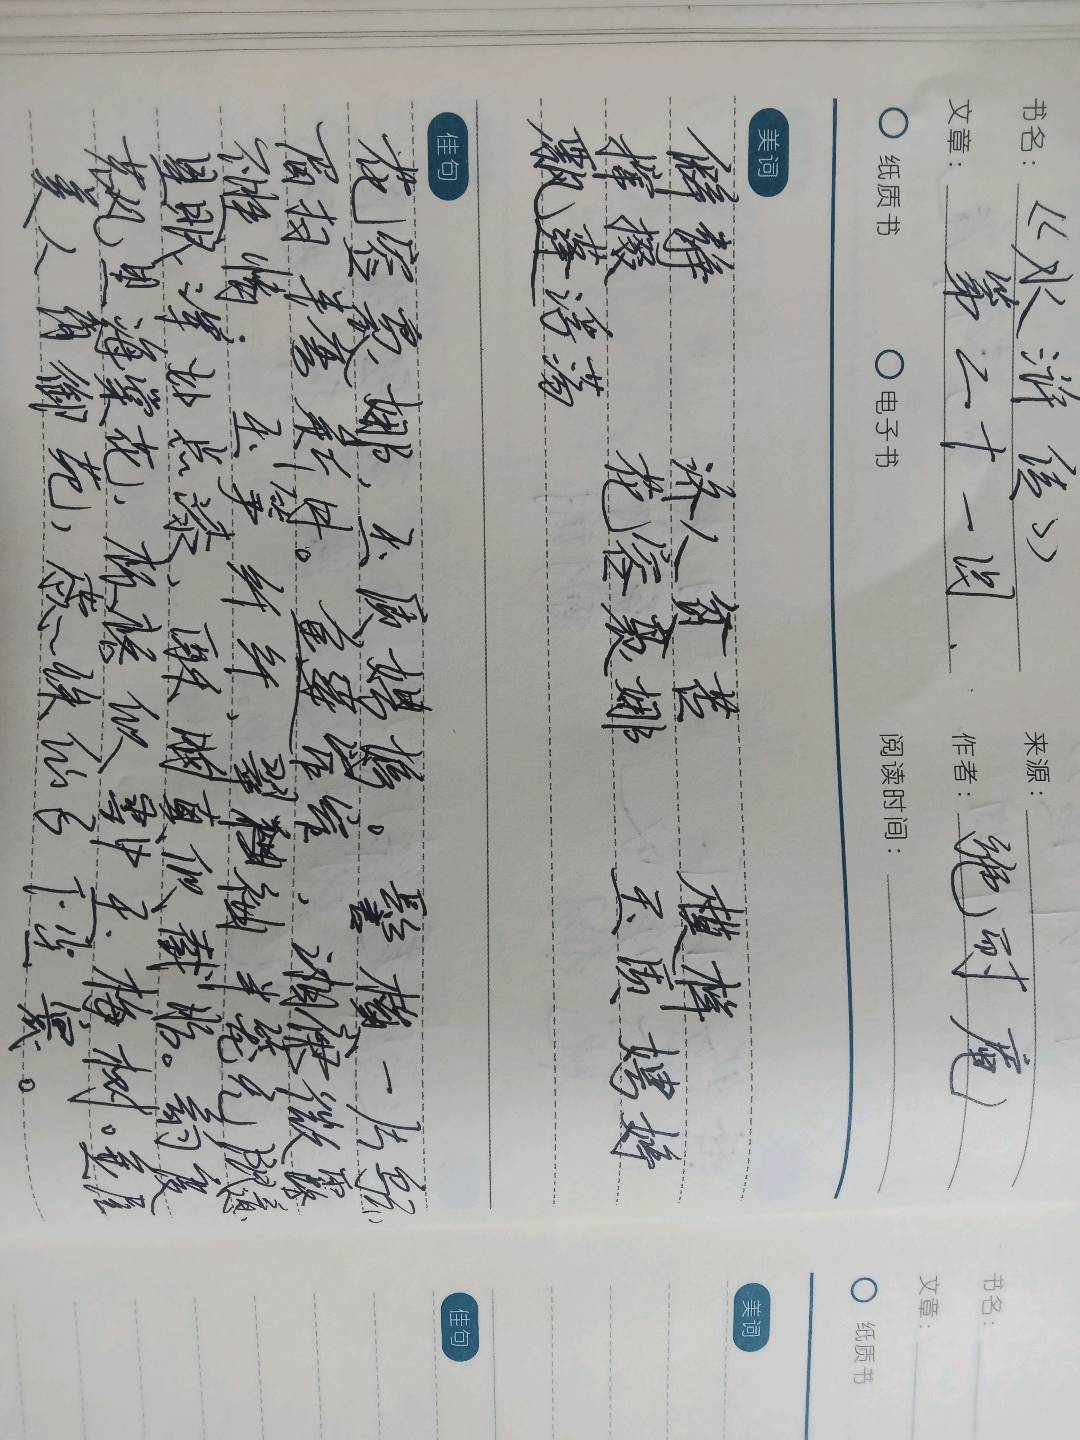 书名：《水浒传》 来源：
文章：第二十一回、 作者：施耐庵
纸质书 电子书 阅读时间：
美词
僻静 济人贫苦
撺掇 花容袅娜 玉质娉婷
飘蓬浮荡
佳句
花容袅娜，玉质娉婷。髻横一片乌云，
眉扫半弯新月。金莲窄窄，湘裙微露
不胜情；玉笋纤纤，翠袖半笼无限意。
星眼浑如点漆，酥胸真似截肪。韵度
若风里海棠花，标格似雪中玉梅树。金屋
美人离御苑，蕊珠仙子下尘寰。
书名：
文章：
纸质书
美词
佳句